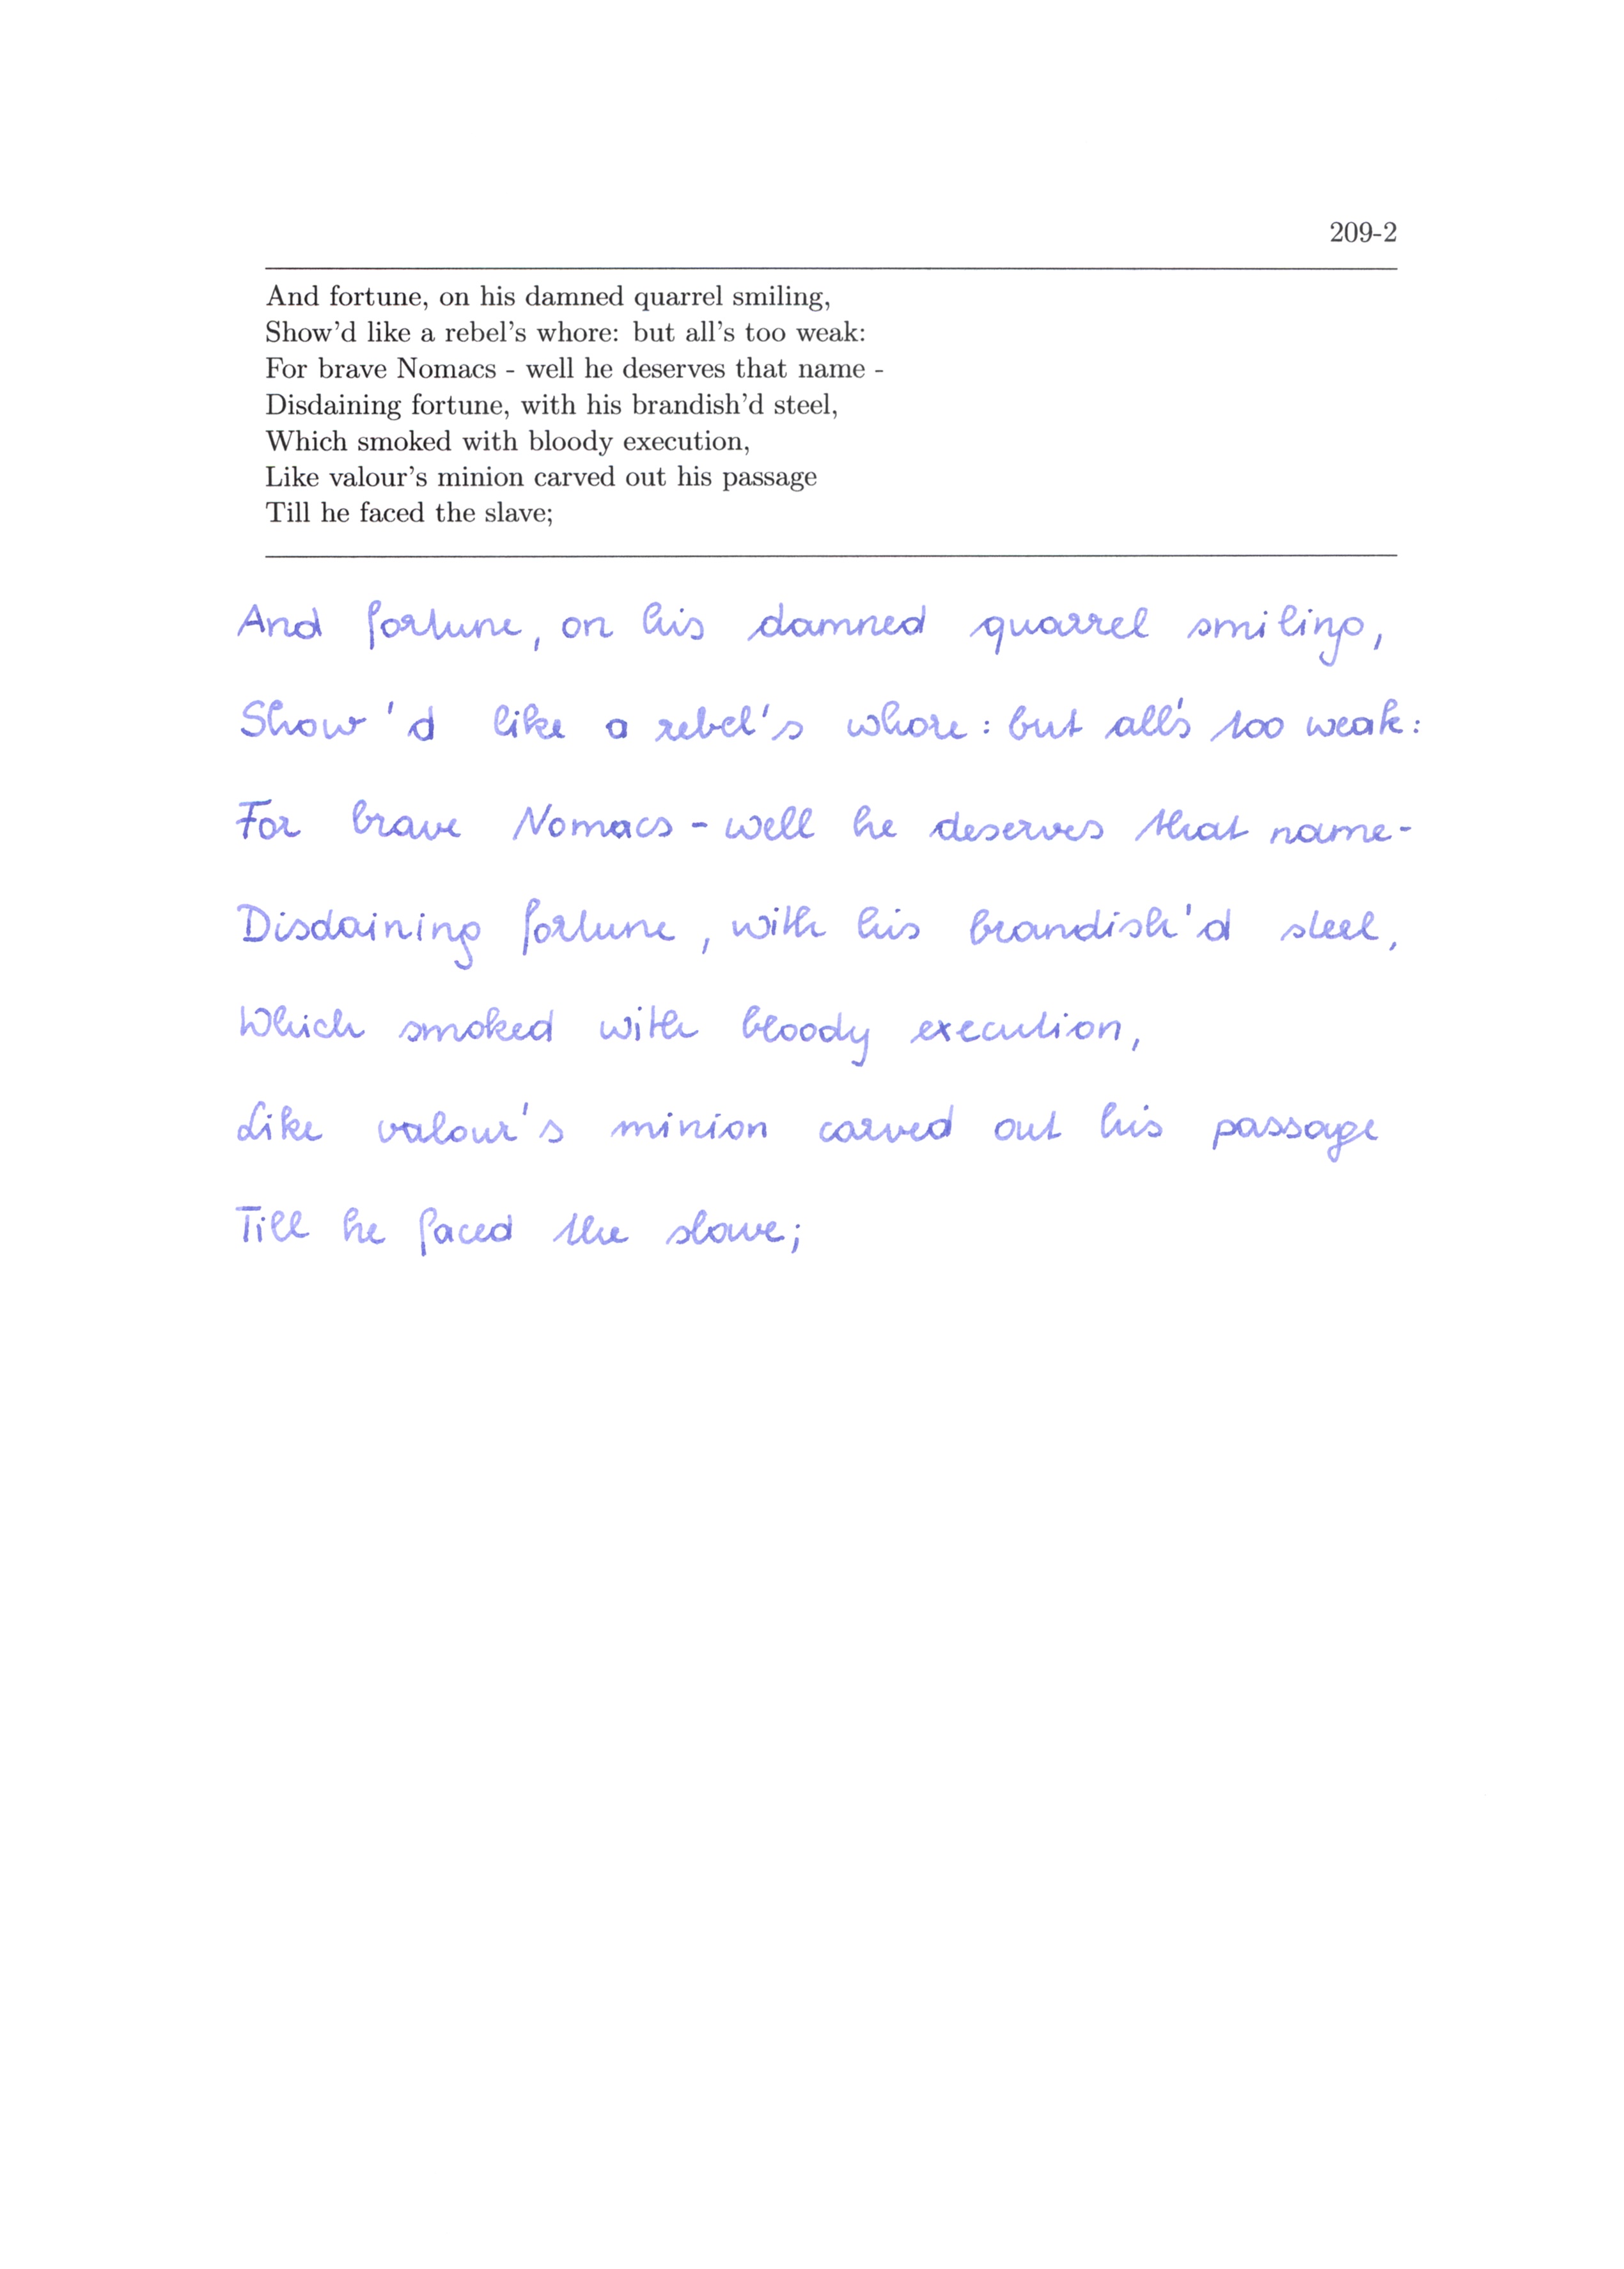 209-2
And fortune, on his damned quarrel smiling,
Show'd like a rebel's whore: but all's too weak:
For brave Nomacs - well he deserves that name -
Disdaining fortune, with his brandish'd steel,
Which smoked with bloody execution,
Like valour's minion carved out his passage
Till he faced the slave;
And fortune, on his damned quarrel smiling,
Show'd like a rebel's whore: but all's too weak:
For brave Nomacs - well he deserves that name -
Disdaining fortune, with his brandish'd steel,
Which smoked with bloody execution,
Like valour's minion carved out his passage
Till he faced the slave;